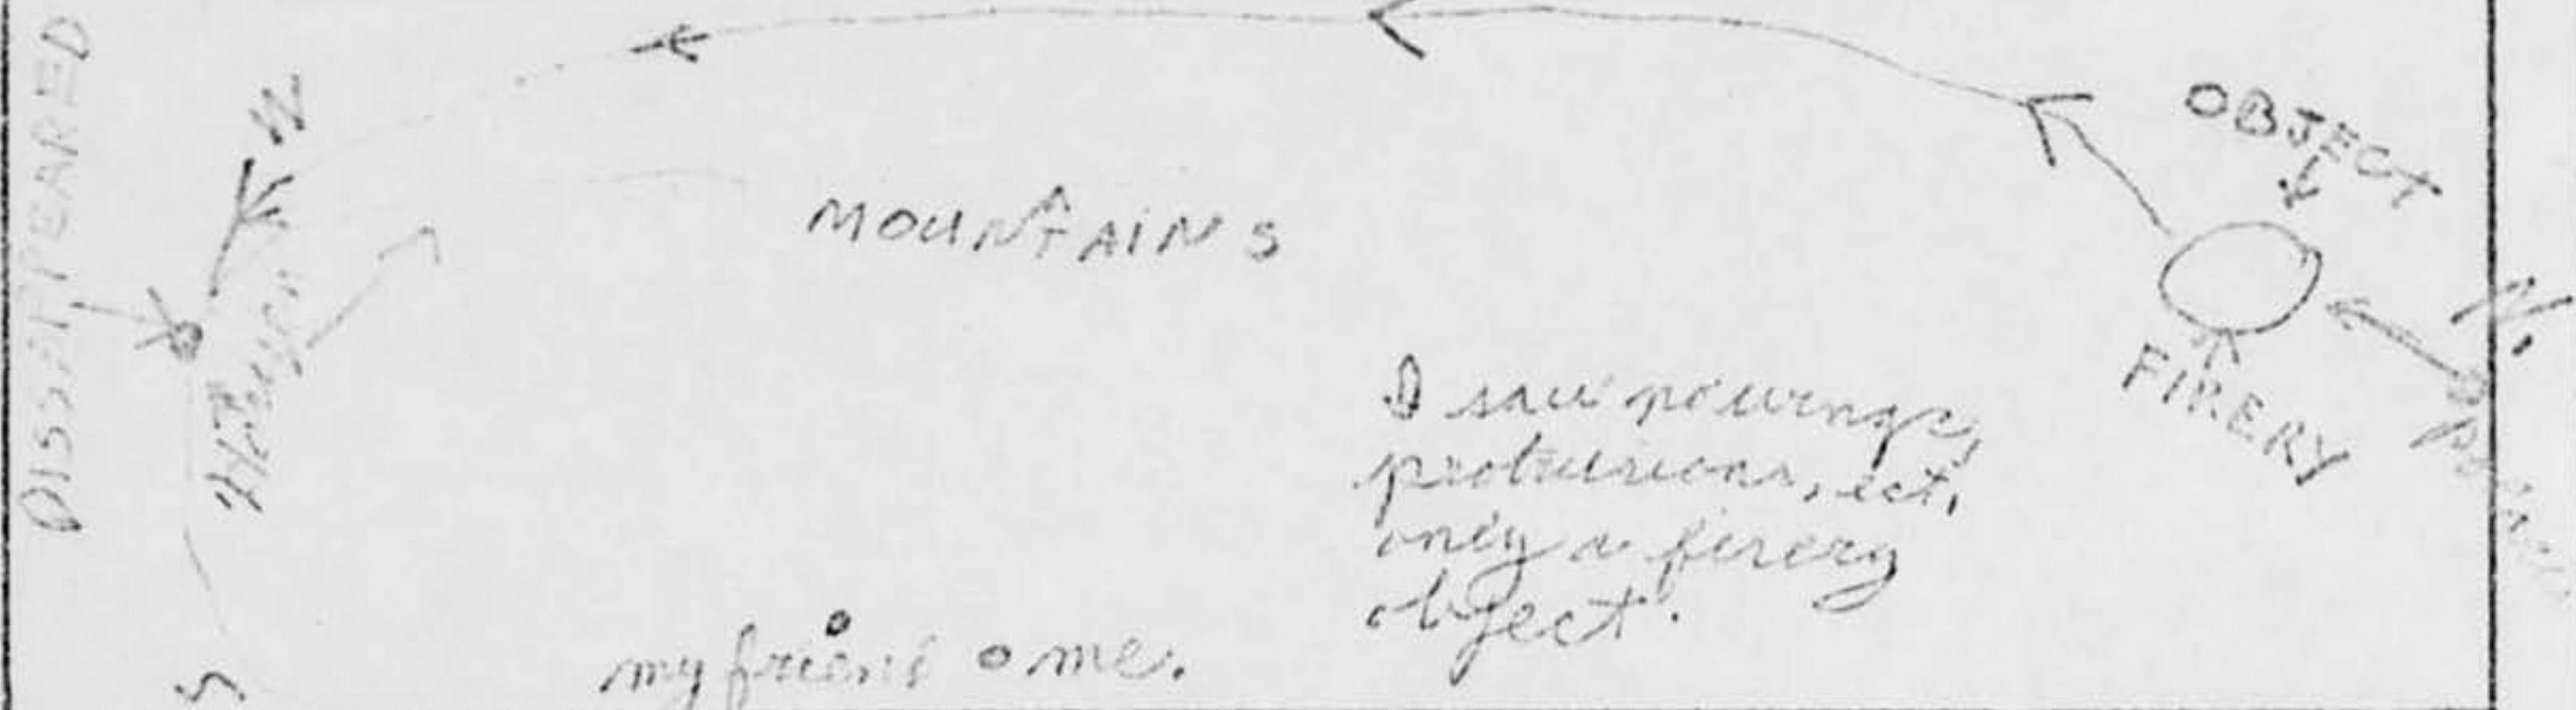 DISSAPPEARED
N
OBJECT
MOUNTAINS
N.
FIRERY
I saw no wings,
protrusions, ect,
only a firery
object.
my friend o me.
S